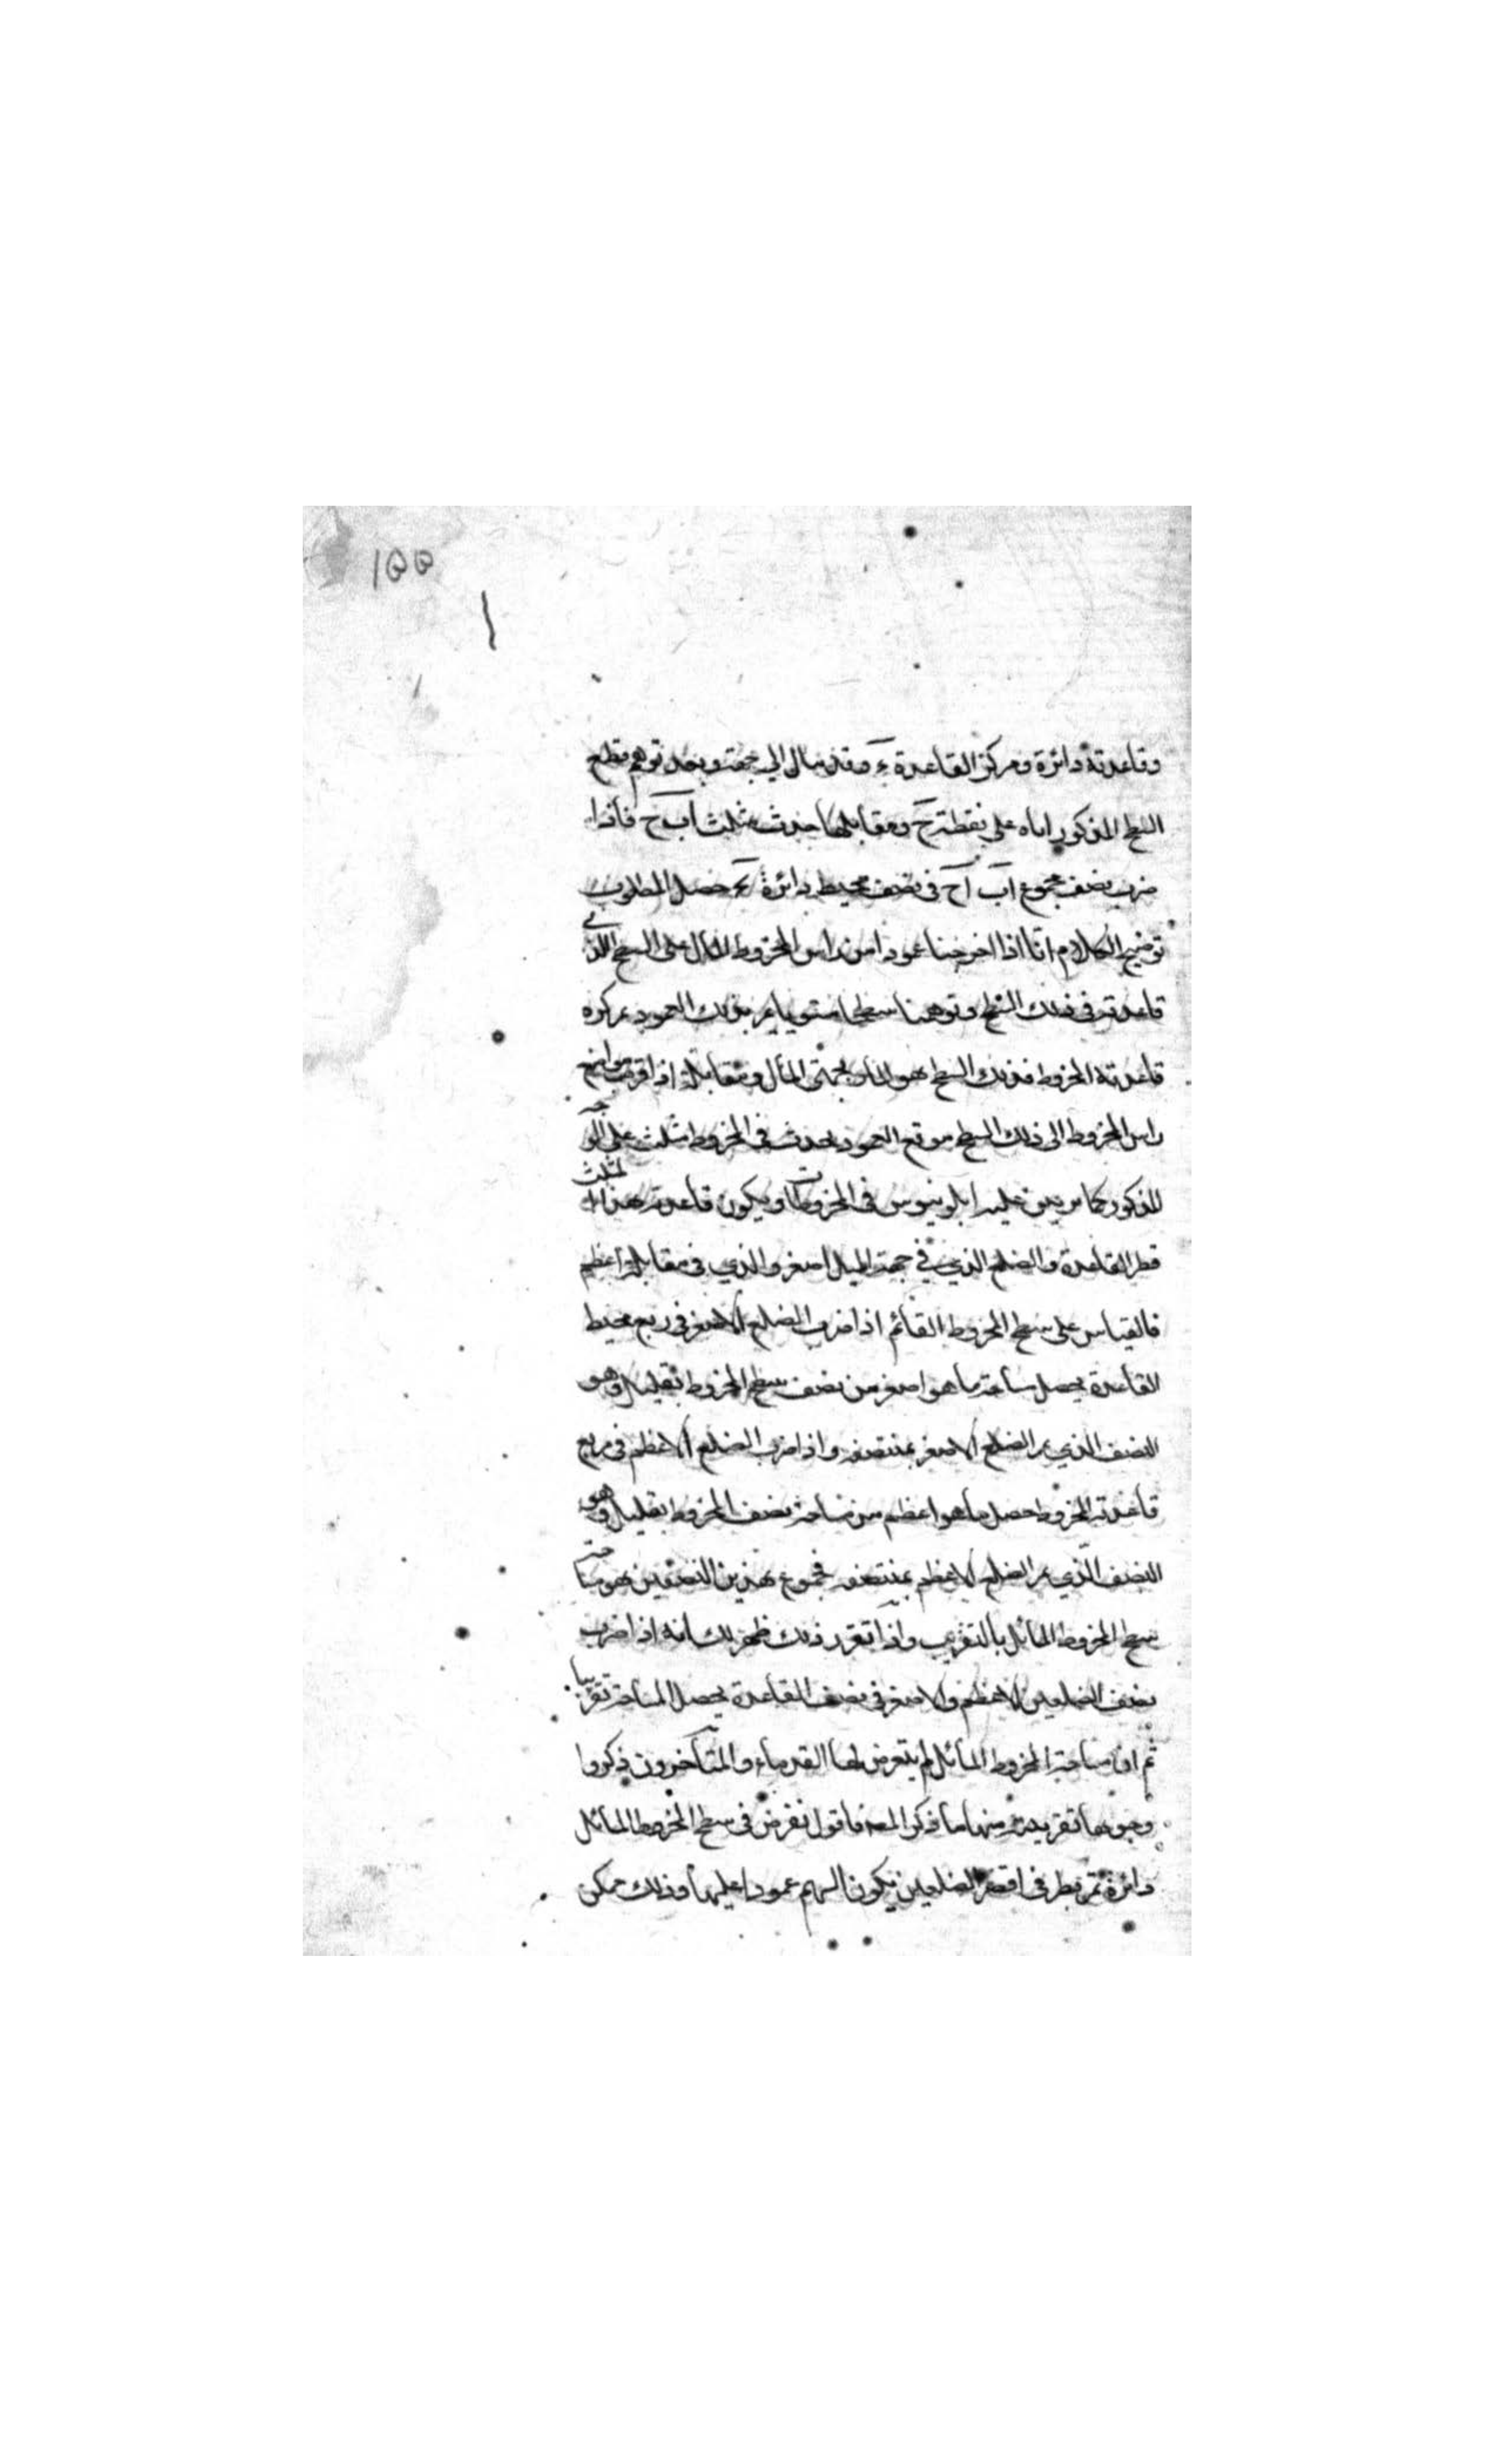 ١٥٥
وقاعدته دائرة ومركز القاعدة ء وقد مال الى جهة وبعد توهم قطع
السطح المذكور اياه على نقطة ح ومقابلها حدث مثلث اب ح فاذا
ضرب نصف مجموع اب اح في نصف محيط دائرة حصل المطلوب
توضيح الكلام انا اذا اخرجنا عمودا من راس المخروط المائل على السطح الذي
قاعدته في ذلك السطح وتوهمنا سطحا مستويا يمر بذلك العمود بمركز
قاعدته المخروط فذلك السطح هو المار بجهتي المائل ومقابله اذا
راس المخروط الى ذلك السطح موقع العمود يحدث في المخروط مثلث على الوجه
المذكور كما برهن عليه ابلونيوس في المخروطات ويكون قاعدة هذا المثلث
قطر القاعدة والضلع الذي في جهة الميل اصغر والذي في مقابله اعظم
فالقياس على سطح المخروط القائم اذا ضرب الضلع الاصغر في ربع محيط
القاعدة يحصل مساحة ما هو اصغر من نصف سطح المخروط بقليل وهو
النصف الذي يمر الضلع الاصغر بمنتصفه واذا ضرب الضلع الاعظم في ربع
قاعدته المخروط حصل ما هو اعظم من مساحة نصف المخروط بقليل وهو
النصف الذي يمر الضلع الاعظم بمنتصفه فمجموع هذين النصفين هو مساحة
سطح المخروط المائل بالتقريب واذا تقرر ذلك ظهر لك انه اذا ضرب
نصف الضلعين الاعظم والاصغر في نصف القاعدة يحصل المساحة تقريبا
ثم ان مساحة المخروط المائل لم يتعرض لها القدماء والمتأخرون ذكروا
وجوها تقريبية منها ما ذكر المصـ فاقول نفرض في سطح المخروط المائل
دائرة تمر بطرفي اقصر الضلعين يكون السهم عمودا عليها وذلك ممكن